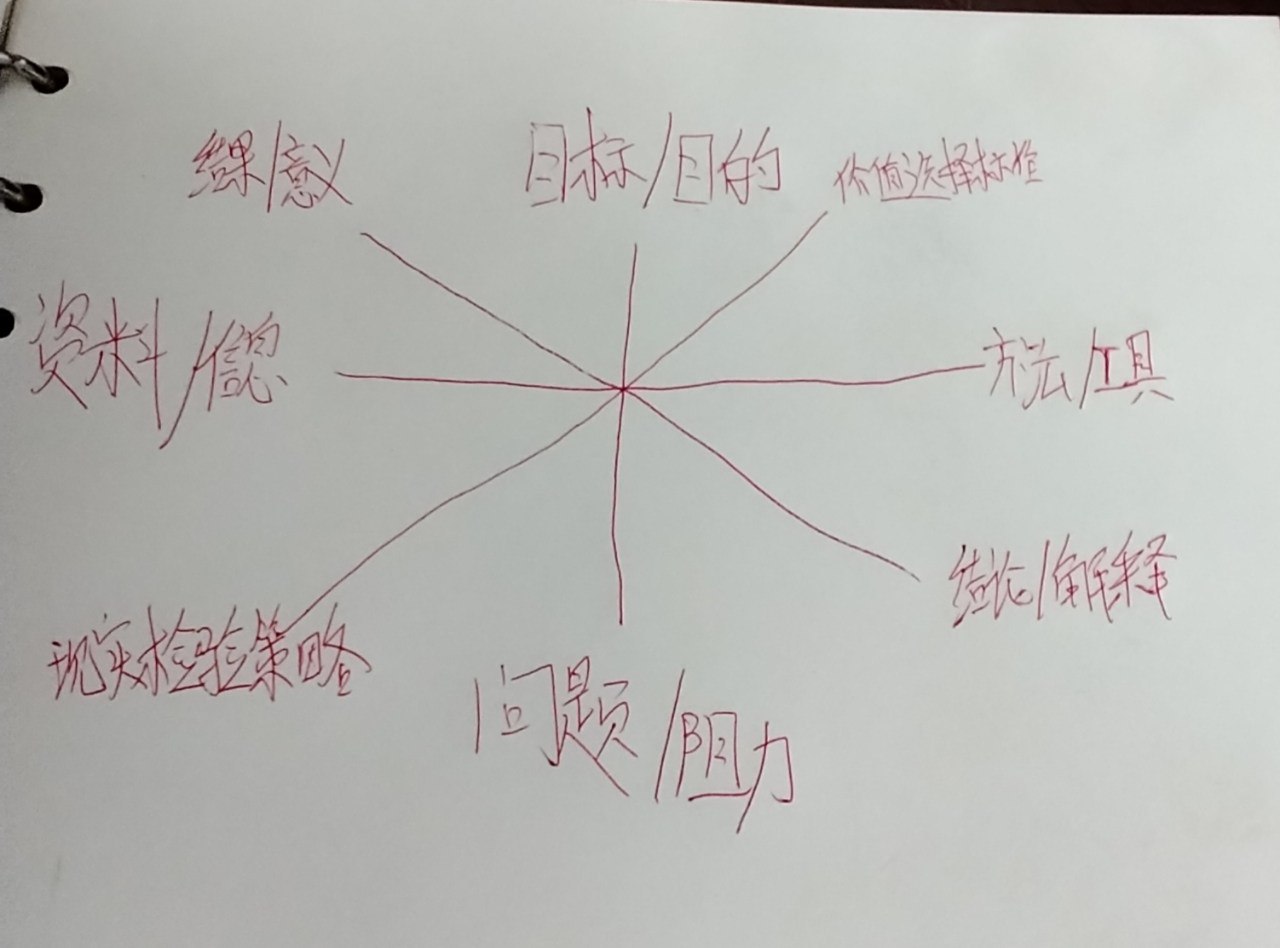 结果/意义
目标/目的
价值选择标准
资料/信息
方法/工具
结论/解释
现实检验策略
问题/阻力